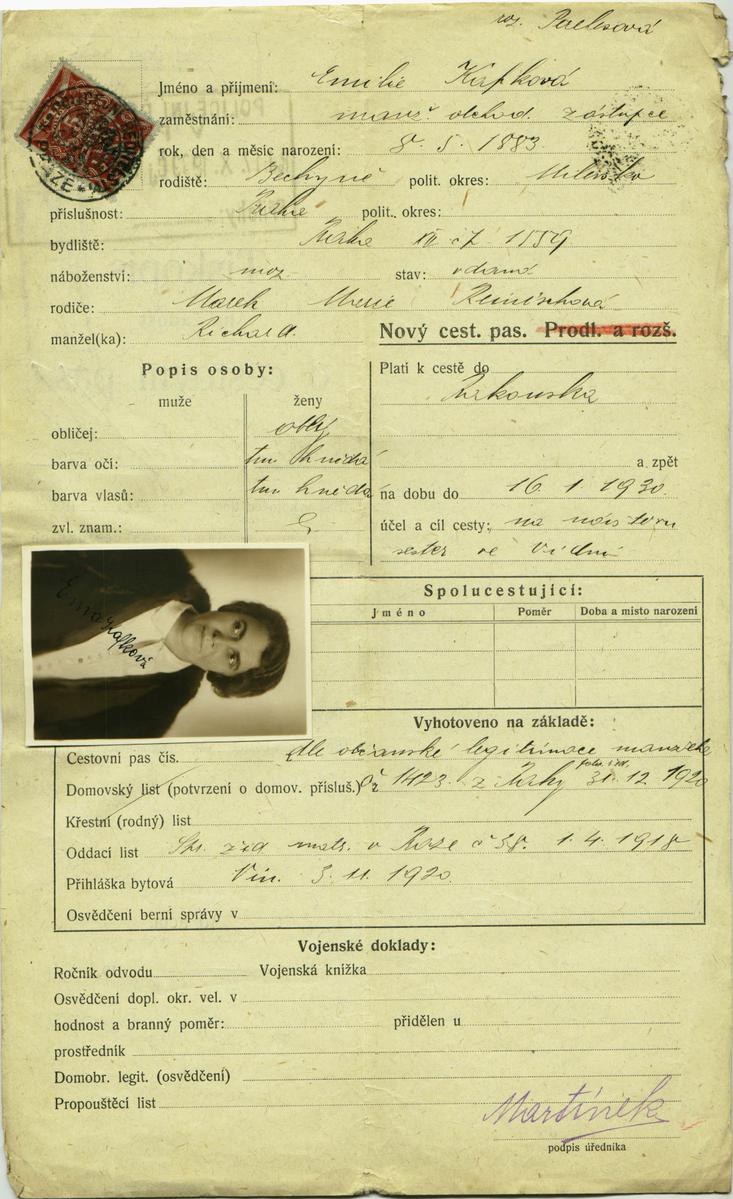 roz.
Jméno a příjmení: Emilie Kafková
zaměstnání: manž. obchod. zástupce
rok, den a měsíc narození: 8. 5. 1883.
rodiště: Bechyně polit. okres: Milevsko
příslušnost: Praha polit. okres:
bydliště: Praha XII čp. 1559
náboženství: moz stav: vdaná
rodiče: Marek Marie
manžel(ka): Richard.
Nový cest. pas. Prodl. a rozš.
Popis osoby:
muže ženy
obličej: oblý
barva očí: tm hnědá
barva vlasů: tm hnědá
zvl. znam.:
Platí k cestě do
Rakouska
a zpět
na dobu do 16. 1. 1930.
účel a cíl cesty: na návštěvu
sester ve Vídni
Ema Kafková
Spolucestující:
Jméno Poměr Doba a místo narození
Vyhotoveno na základě:
Cestovní pas čís. dle občanské legitimace manžela
Domovský list (potvrzení o domov. přísluš.) č 1423. z Prahy 31. 12. 1920
Křestní (rodný) list
Oddací list žid. matr. v Praze č 38. 1. 4. 1918
Přihláška bytová Vin. 3. 11. 1920.
Osvědčení berní správy v
Vojenské doklady:
Ročník odvodu Vojenská knížka
Osvědčení dopl. okr. vel. v
hodnost a branný poměr: přidělen u
prostředník
Domobr. legit. (osvědčení)
Propouštěcí list
Martínek
podpis úředníka